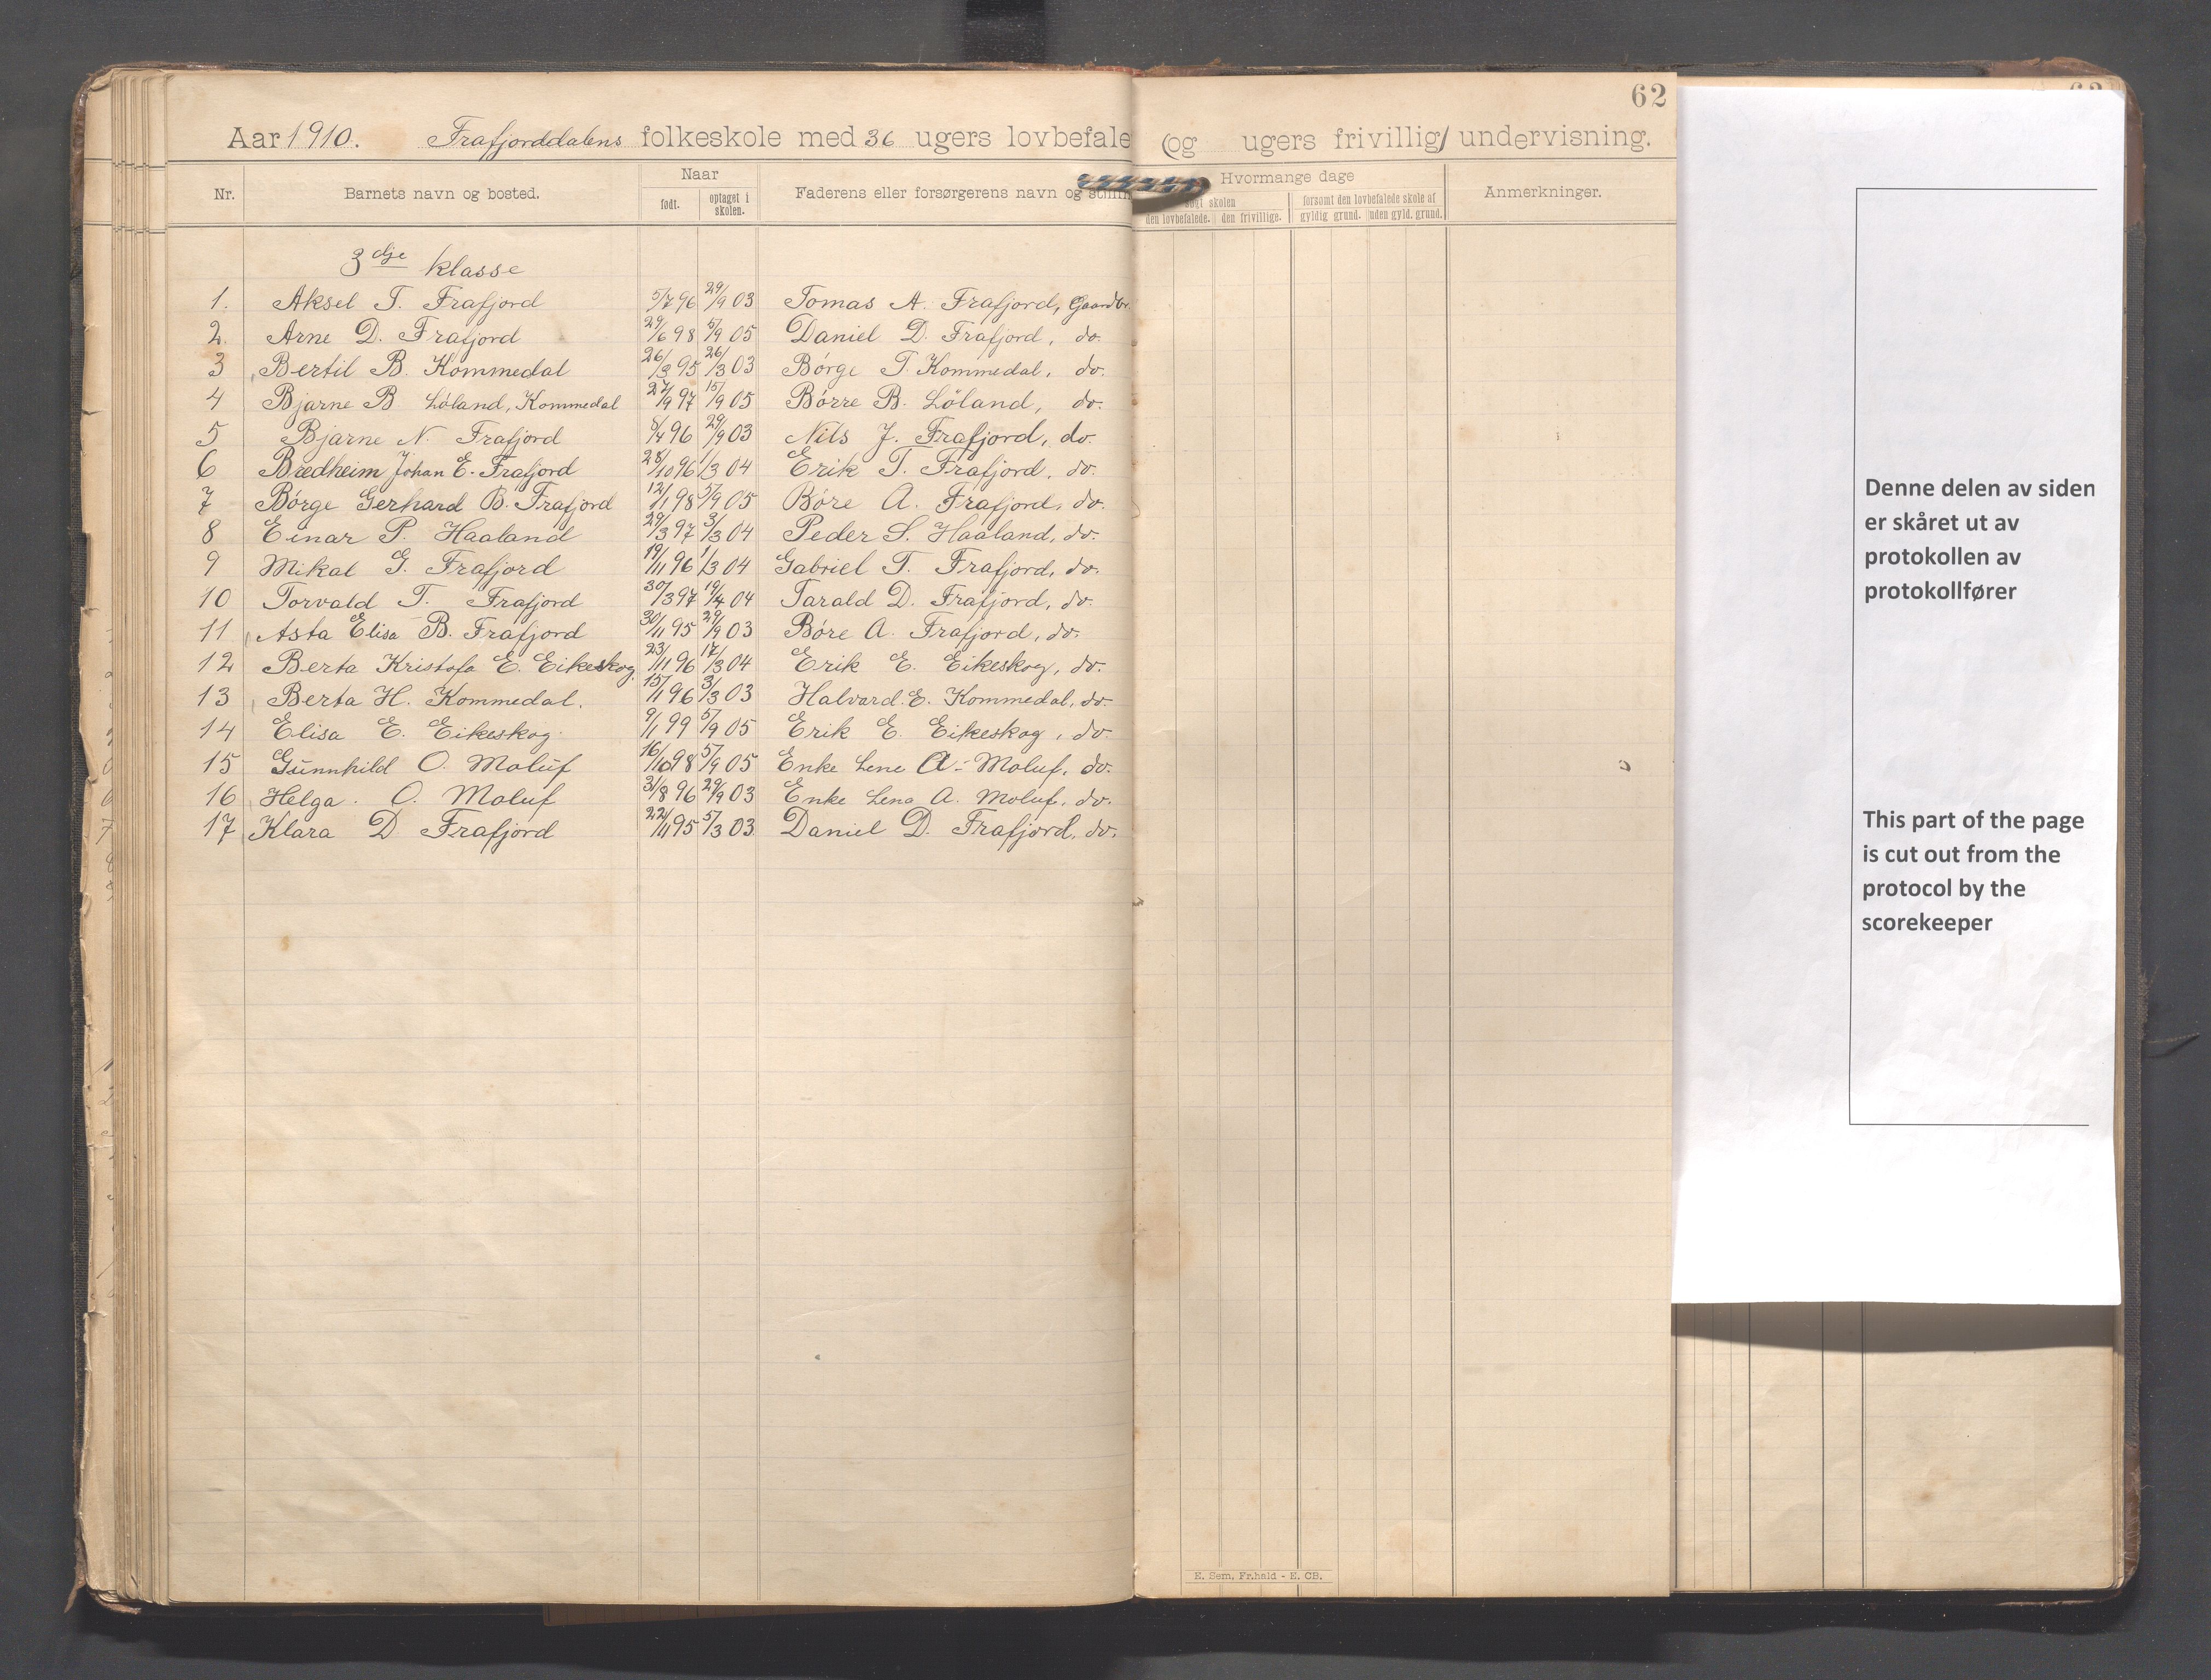 62
Aar 1910. Frafjorddalens folkeskole med 36 ugers lovbefale (og ugers frivillig) undervisning.
Nr. Barnets navn og bosted. Naar født. optaget i skolen. Faderens eller forsørgerens navn og stillin Hvormange dage søgt skolen den lovbefalede. den frivillige. forsømt den lovbefalede skole af gyldig grund. uden gyld. grund. Anmerkninger.
3dje klasse
1. Aksel T. Frafjord 5/7 96 29/9 03 Tomas A. Frafjord, Gaardbr.
2. Arne D. Frafjord 29/6 98 5/9 05 Daniel D. Frafjord, do.
3 Bertil B. Kommedal 26/3 95 26/3 03 Børge T. Kommedal, do.
4 Bjarne B. Løland, Kommedal 27/9 97 15/9 05 Børre B. Løland, do.
5 Bjarne N. Frafjord 8/4 96 29/9 03 Nils J. Frafjord, do.
6 Bredheim Johan E. Frafjord 28/10 96 1/3 04 Erik T. Frafjord, do.
7 Børge Gerhard B. Frafjord 12/1 98 5/9 05 Børe A. Frafjord, do.
8 Einar P. Haaland 29/3 97 3/3 04 Peder S. Haaland, do.
9 Mikal G. Frafjord 19/11 96 1/3 04 Gabriel T. Frafjord, do.
10 Torvald T. Frafjord 30/3 97 19/4 04 Tarald D. Frafjord, do.
11 Asta Elisa B. Frafjord 30/11 95 29/9 03 Børe A. Frafjord, do.
12 Berta Kristofa E. Eikeskog. 23/11 96 17/3 04 Erik E. Eikeskog, do.
13 Berta H. Kommedal. 15/1 96 3/3 03 Halvard E. Kommedal, do.
14 Elisa E. Eikeskog. 9/1 99 5/9 05 Erik E. Eikeskog, do.
15 Gunnhild O. Moluf 16/10 98 5/9 05 Enke Lene A. Moluf, do.
16 Helga. O. Moluf 31/8 96 29/9 03 Enke Lena A. Moluf, do.
17 Klara D Frafjord 22/11 95 5/3 03 Daniel D. Frafjord, do.
E. Sem, Fr.hald - E. CB.
Denne delen av siden
er skåret ut av
protokollen av
protokollfører
This part of the page
is cut out from the
protocol by the
scorekeeper